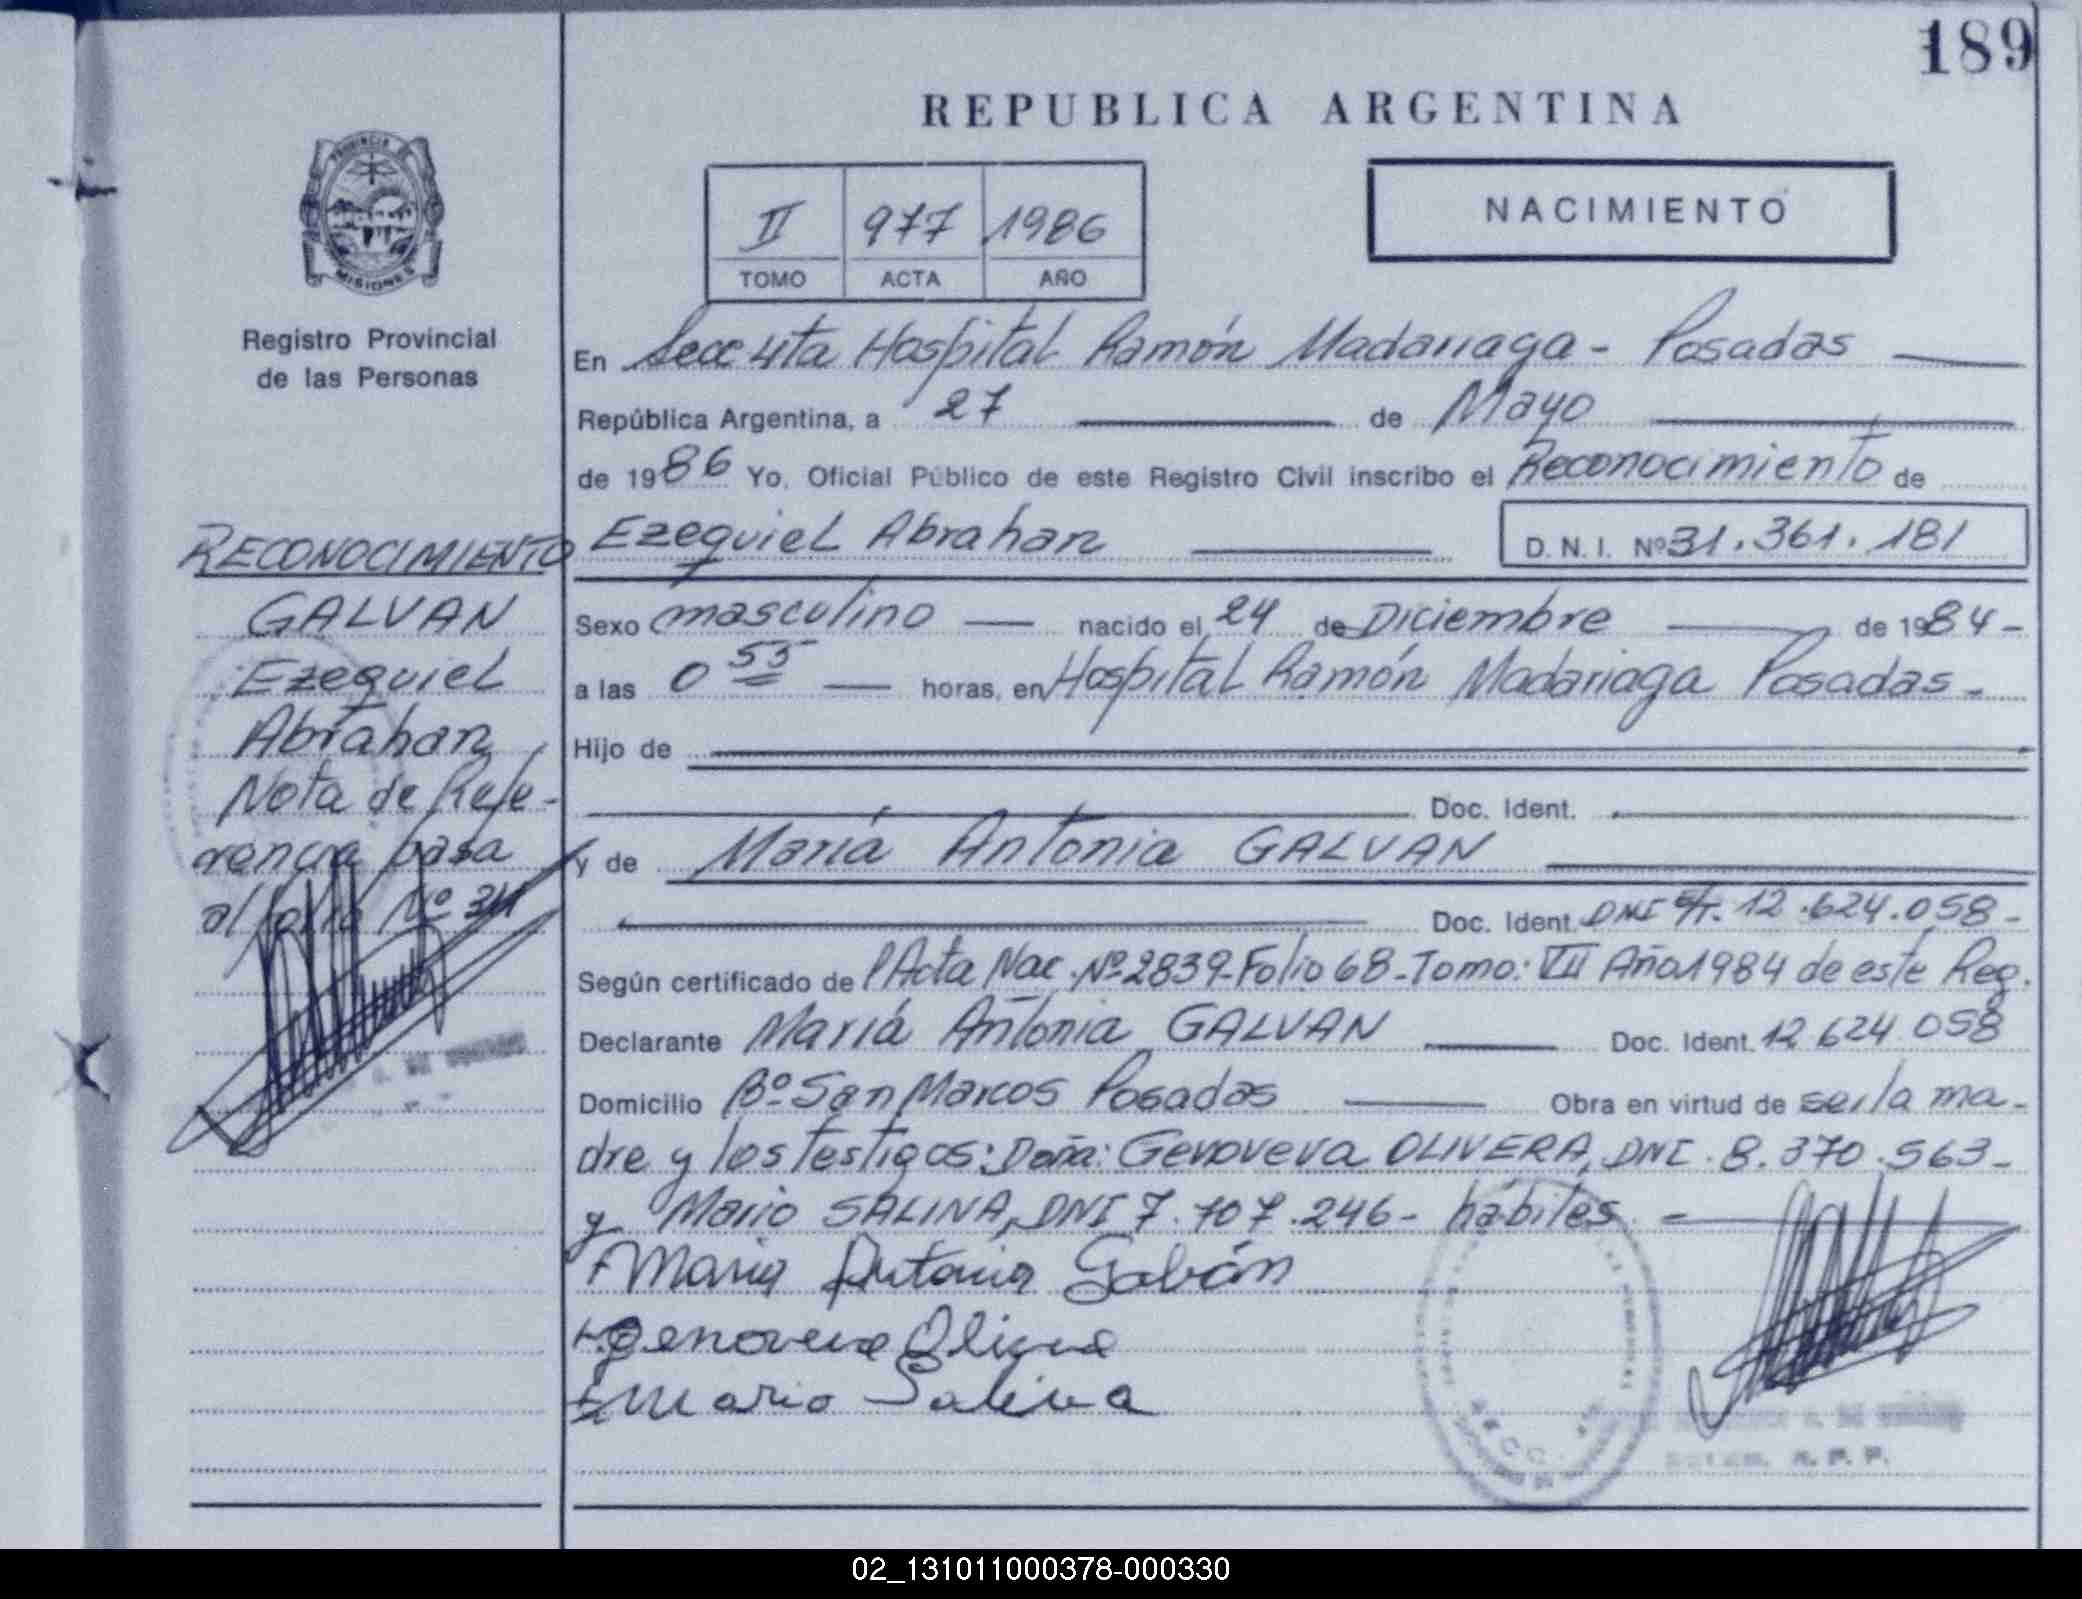 189
REPUBLICA ARGENTINA
PROVINCIA DE
MISIONES
II 977 1986
TOMO ACTA AÑO
NACIMIENTO
Registro Provincial
de las Personas
En Secc 4ta Hospital Ramón Madariaga - Posadas
República Argentina, a 27 de Mayo
de 1986 Yo, Oficial Público de este Registro Civil inscribo el Reconocimiento de
Ezequiel Abrahan D. N. I. Nº 31.361.181
Sexo masculino nacido el 24 de Diciembre de 1984-
a las 0 55 horas, en Hospital Ramón Madariaga Posadas-
Hijo de
Doc. Ident.
y de María Antonia GALVAN
Doc. Ident. DNI 12.624.058-
Según certificado de Acta Nac. Nº 2839-Folio 68-Tomo: VII Año 1984 de este Reg.
Declarante María Antonia GALVAN Doc. Ident. 12 624 058
Domicilio Bº San Marcos Posadas Obra en virtud de ser la ma-
dre y los testigos: Doña: Genoveva OLIVERA, DNI. 8.370.563-
y Mario SALINA, DNI 7.107.246- hábiles
Maria Antonia Galván
Genoveva Olivera
Mario Salina
RECONOCIMIENTO
GALVAN
Ezequiel
Abrahan
Nota de Refe-
rencia pasa
al folio Nº
SECC.
02_131011000378-000330